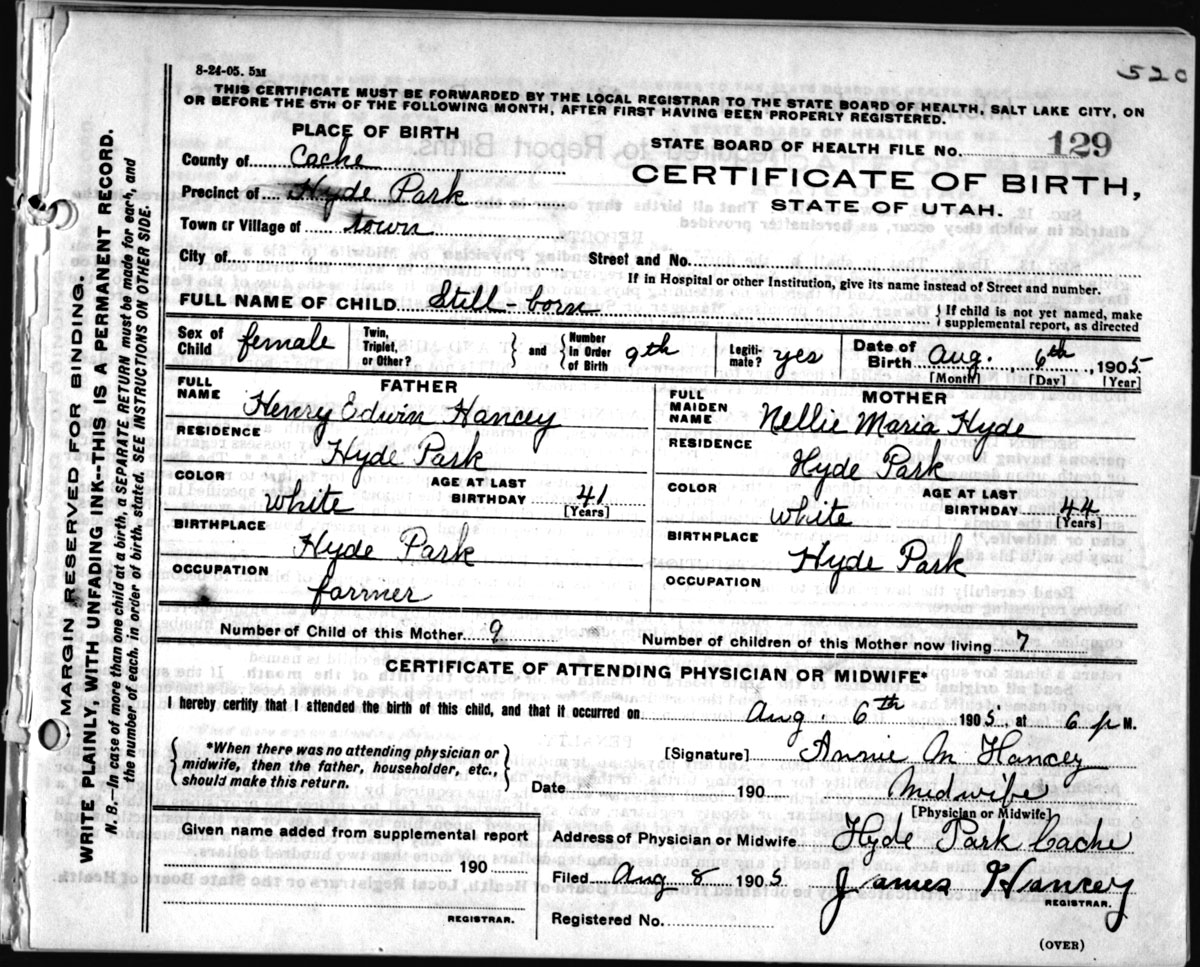 8-24-05. 5M
520
THIS CERTIFICATE MUST BE FORWARDED BY THE LOCAL REGISTRAR TO THE STATE BOARD OF HEALTH, SALT LAKE CITY, ON
OR BEFORE THE 5TH OF THE FOLLOWING MONTH, AFTER FIRST HAVING BEEN PROPERLY REGISTERED.
PLACE OF BIRTH
County of Cache
Precinct of Hyde Park
Town or Village of town
STATE BOARD OF HEALTH FILE No. 129
CERTIFICATE OF BIRTH,
STATE OF UTAH.
City of Street and No.
If in Hospital or other Institution, give its name instead of Street and number.
FULL NAME OF CHILD Still-born { If child is not yet named, make
supplemental report, as directed
Sex of Child female
Twin, Triplet, or Other? } and { Number In Order of Birth 9th
Legiti-mate? yes
Date of Birth Aug. 6th, 1905
[Month] [Day] [Year]
FATHER
FULL NAME Henry Edwin Hancey
RESIDENCE Hyde Park
COLOR White AGE AT LAST BIRTHDAY 41
[Years]
BIRTHPLACE Hyde Park
OCCUPATION farmer
MOTHER
FULL MAIDEN NAME Nellie Maria Hyde
RESIDENCE Hyde Park
COLOR White AGE AT LAST BIRTHDAY 44
[Years]
BIRTHPLACE Hyde Park
OCCUPATION
Number of Child of this Mother 9 Number of children of this Mother now living 7
CERTIFICATE OF ATTENDING PHYSICIAN OR MIDWIFE*
I hereby certify that I attended the birth of this child, and that it occurred on Aug. 6th 1905 at 6 p M.
{ *When there was no attending physician or
midwife, then the father, householder, etc.,
should make this return. }
[Signature] Annie M Hancey
Date 190 Midwife
[Physician or Midwife]
Given name added from supplemental report
190
REGISTRAR.
Address of Physician or Midwife Hyde Park Cache
Filed Aug 8 1905 James Hancey
REGISTRAR.
Registered No.
(OVER)
MARGIN RESERVED FOR BINDING.
WRITE PLAINLY, WITH UNFADING INK--THIS IS A PERMANENT RECORD.
N. B.—In case of more than one child at a birth, a SEPARATE RETURN must be made for each, and
the number of each, in order of birth, stated. SEE INSTRUCTIONS ON OTHER SIDE.